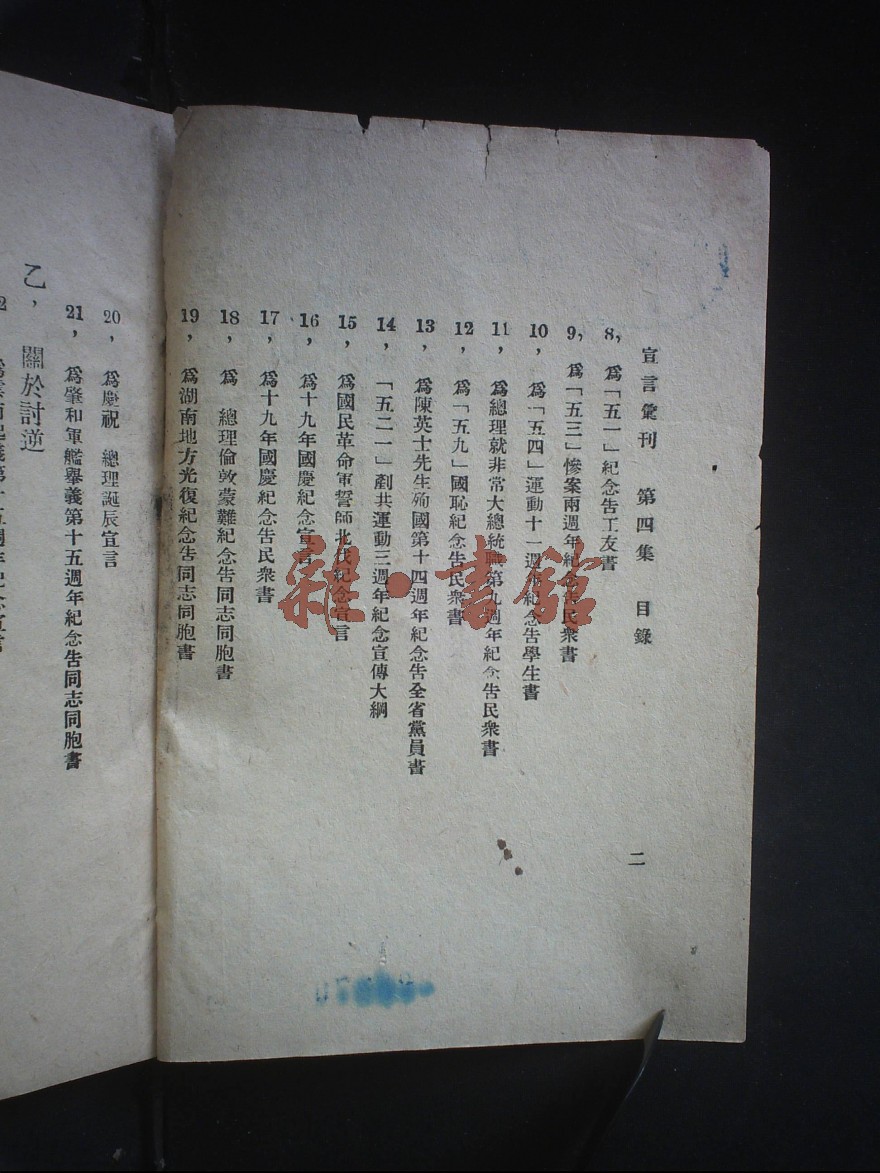 宣言彙刊 第四集 目錄
二
8, 爲「五一」紀念告工友書
9, 爲「五三」慘案兩週年紀念告民衆書
10, 爲「五四」運動十一週年紀念告學生書
11, 爲總理就非常大總統職第九週年紀念告民衆書
12, 爲「五九」國恥紀念告民衆書
13, 爲陳英士先生殉國第十四週年紀念告全省黨員書
14, 「五二一」剷共運動三週年紀念宣傳大綱
15, 爲國民革命軍誓師北伐紀念宣言
16, 爲十九年國慶紀念宣言
17, 爲十九年國慶紀念告民衆書
18, 爲 總理倫敦蒙難紀念告同志同胞書
19, 爲湖南地方光復紀念告同志同胞書
20, 爲慶祝 總理誕辰宣言
21, 爲肇和軍艦舉義第十五週年紀念告同志同胞書
乙, 關於討逆
雜·書館